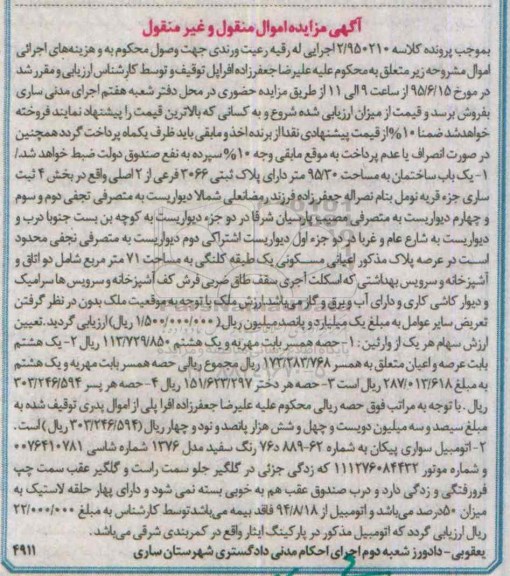 آگهی مزایده اموال منقول و غیر منقول
بموجب پرونده کلاسه ۲/۹۵۰۲۱۰ اجرایی له رقیه رعیت ورندی جهت وصول محکوم به و هزینه‌های اجرائی
اموال مشروحه زیر متعلق به محکوم علیه علیرضا جعفرزاده افراپل توقیف و توسط کارشناس ارزیابی و مقرر شد
در مورخ ۹۵/۶/۱۵ از ساعت ۹ الی ۱۱ از طریق مزایده حضوری در محل دفتر شعبه هفتم اجرای مدنی ساری
بفروش برسد و قیمت از میزان ارزیابی شده شروع و به کسانی که بالاترین قیمت را پیشنهاد نمایند فروخته
خواهد شد ضمنا ۱۰% از قیمت پیشنهادی نقدا از برنده اخذ و مابقی باید ظرف یکماه پرداخت گردد همچنین
در صورت انصراف یا عدم پرداخت به موقع مابقی وجه ۱۰% سپرده به نفع صندوق دولت ضبط خواهد شد./
۱- یک باب ساختمان به مساحت ۹۵/۳۰ متر دارای پلاک ثبتی ۳۰۶۶ فرعی از ۲ اصلی واقع در بخش ۴ ثبت
ساری جزء قریه نومل بنام نصراله جعفرزاده فرزند رمضانعلی شمالا دیواریست به متصرفی نجفی دوم و سوم
و چهارم دیواریست به متصرفی مصیب پارسیان شرقا در دو جزء دیواریست به کوچه بن بست جنوبا درب و
دیواریست به شارع عام و غربا در دو جزء اول دیواریست اشتراکی دوم دیواریست به متصرفی نجفی محدود
است در عرصه پلاک مذکور اعیانی مسکونی یک طبقه کلنگی به مساحت ۷۱ متر مربع شامل دو اتاق و
آشپزخانه و سرویس بهداشتی که اسکلت آجری سقف طاق ضربی فرش کف آشپزخانه و سرویس ها سرامیک
و دیوار کاشی کاری و دارای آب و برق و گاز می‌باشد ارزش ملک با توجه به موقعیت ملک بدون در نظر گرفتن
تعریض سایر عوامل به مبلغ یک میلیارد و پانصد میلیون ریال (۱/۵۰۰/۰۰۰/۰۰۰ ریال) ارزیابی گردید. تعیین
ارزش سهام هر یک از وارثین: ۱- حصه همسر بابت مهریه و یک هشتم ۱۱۳/۷۲۹/۸۵۰ ریال ۲- یک هشتم
بابت عرصه و اعیان متعلق به همسر ۱۷۳/۲۸۳/۷۶۸ ریال مجموع ریالی حصه همسر بابت مهریه و یک هشتم
به مبلغ ۲۸۷/۰۱۳/۶۱۸ ریال است ۳- حصه هر دختر ۱۵۱/۶۲۳/۲۹۷ ریال ۴- حصه هر پسر ۳۰۳/۲۴۶/۵۹۴
ریال. با توجه به مراتب فوق حصه ریالی محکوم علیه علیرضا جعفرزاده افرا پلی از اموال پدری توقیف شده به
مبلغ سیصد و سه میلیون دویست و چهل و شش هزار پانصد و نود و چهار ریال (۳۰۳/۲۴۶/۵۹۴ ریال) است.
۲- اتومبیل سواری پیکان به شماره ۶۲-۸۸۹ د۷۶ رنگ سفید مدل ۱۳۷۶ شماره شاسی ۰۰۷۶۴۱۰۷۸۱
و شماره موتور ۱۱۱۲۷۶۰۸۴۴۲۲ که زدگی جزئی در گلگیر جلو سمت راست و گلگیر عقب سمت چپ
فرورفتگی و زدگی دارد و درب صندوق عقب هم به خوبی بسته نمی شود و دارای چهار حلقه لاستیک به
میزان ۵۰درصد می‌باشد و اتومبیل از ۹۴/۸/۱۸ فاقد بیمه می‌باشد توسط کارشناس به مبلغ ۲۲/۰۰۰/۰۰۰
ریال ارزیابی گردد که اتومبیل مذکور در پارکینگ ایثار واقع در کمربندی شرقی می‌باشد.
یعقوبی- دادورز شعبه دوم اجرای احکام مدنی دادگستری شهرستان ساری ۴۹۱۱